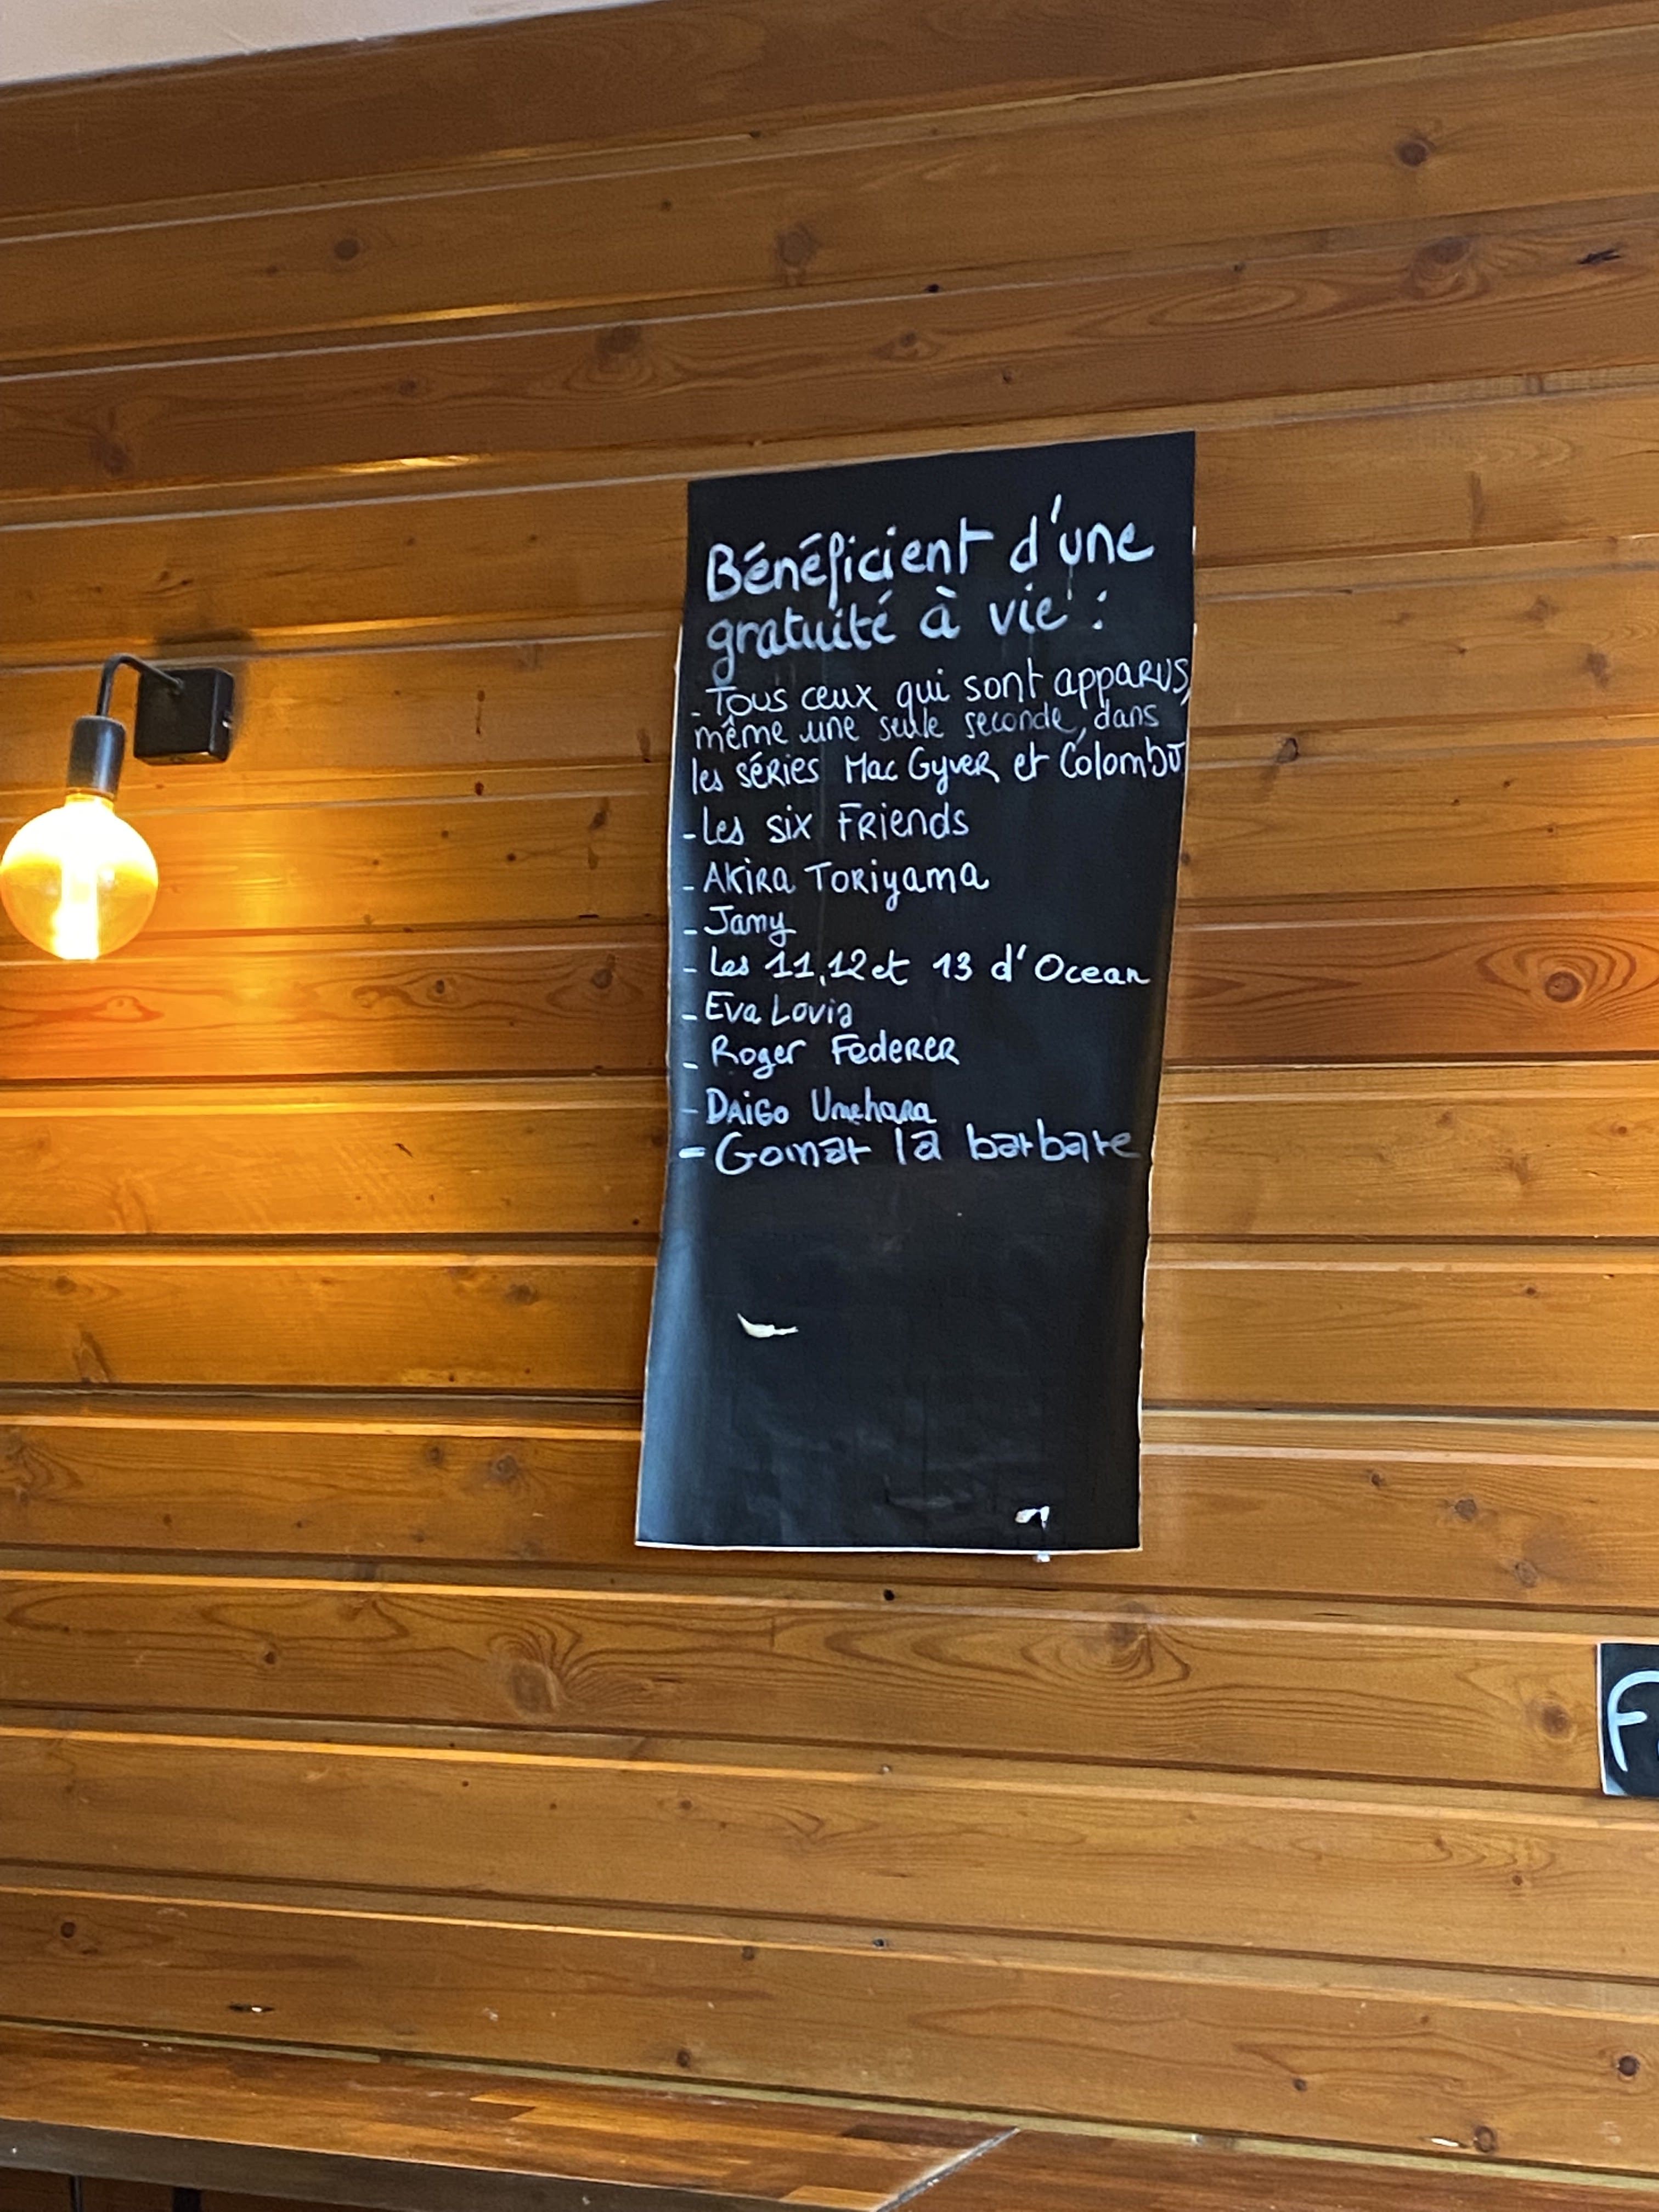 Bénéficient d'une
gratuité à vie :
- Tous ceux qui sont apparus,
même une seule seconde, dans
les séries Mac Gyver et Colombo
- Les six Friends
- Akira Toriyama
- Jamy
- Les 11, 12 et 13 d'Ocean
- Eva Lovia
- Roger Federer
- Daigo Umehara
- Gonar la barbare